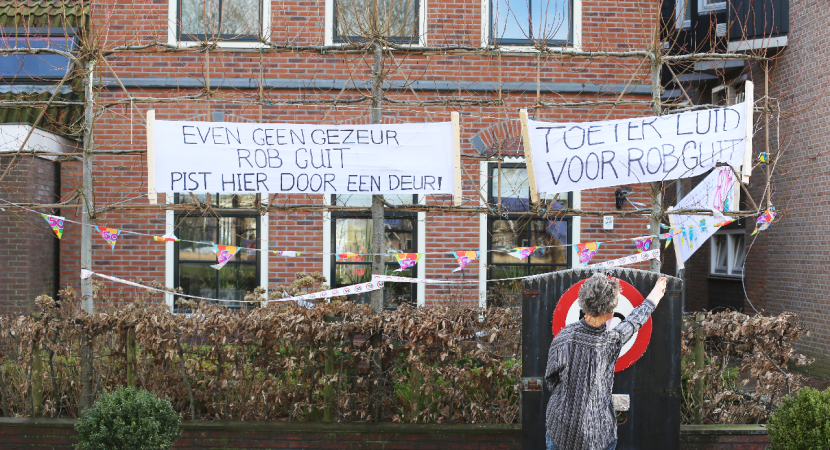 EVEN GEEN GEZEUR
ROB GUIT
PIST HIER DOOR EEN DEUR!
TOETER LUID
VOOR ROB GUIT